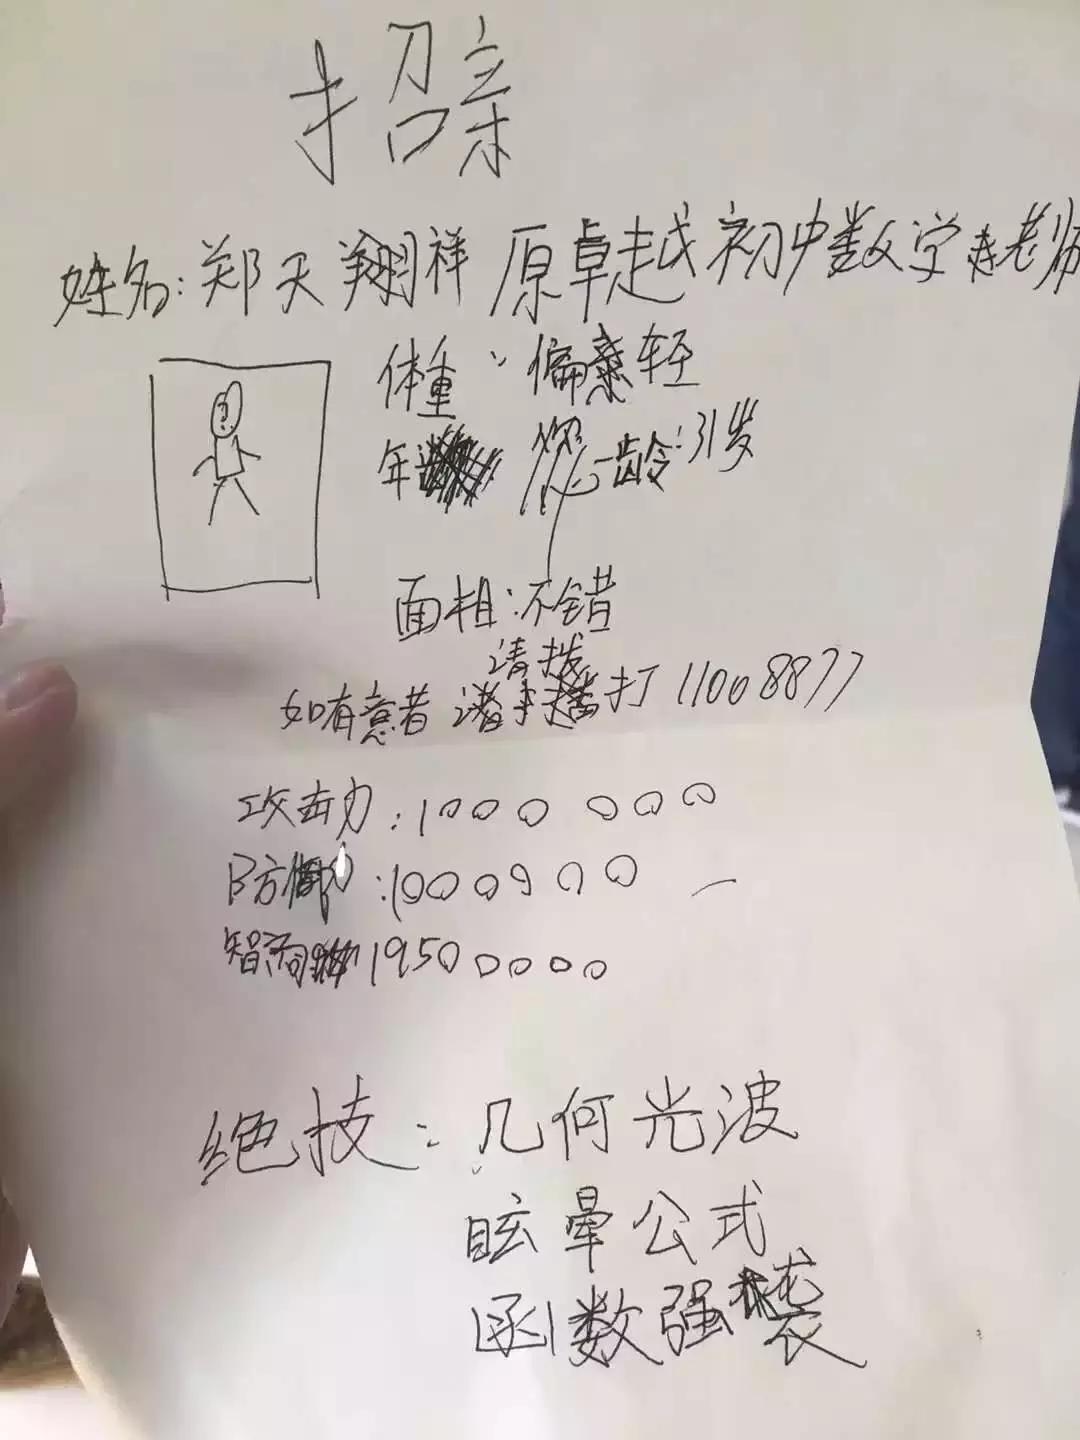 招亲
姓名:郑天翔祥 原卓越初中数学老师
?
体重:偏轻
年龄:31岁
面相:不错
请拨
如有意者 打 11008877
攻击力:1000 000
防御:1000900
智商 19500000
绝技:几何光波
眩晕公式
函数强袭